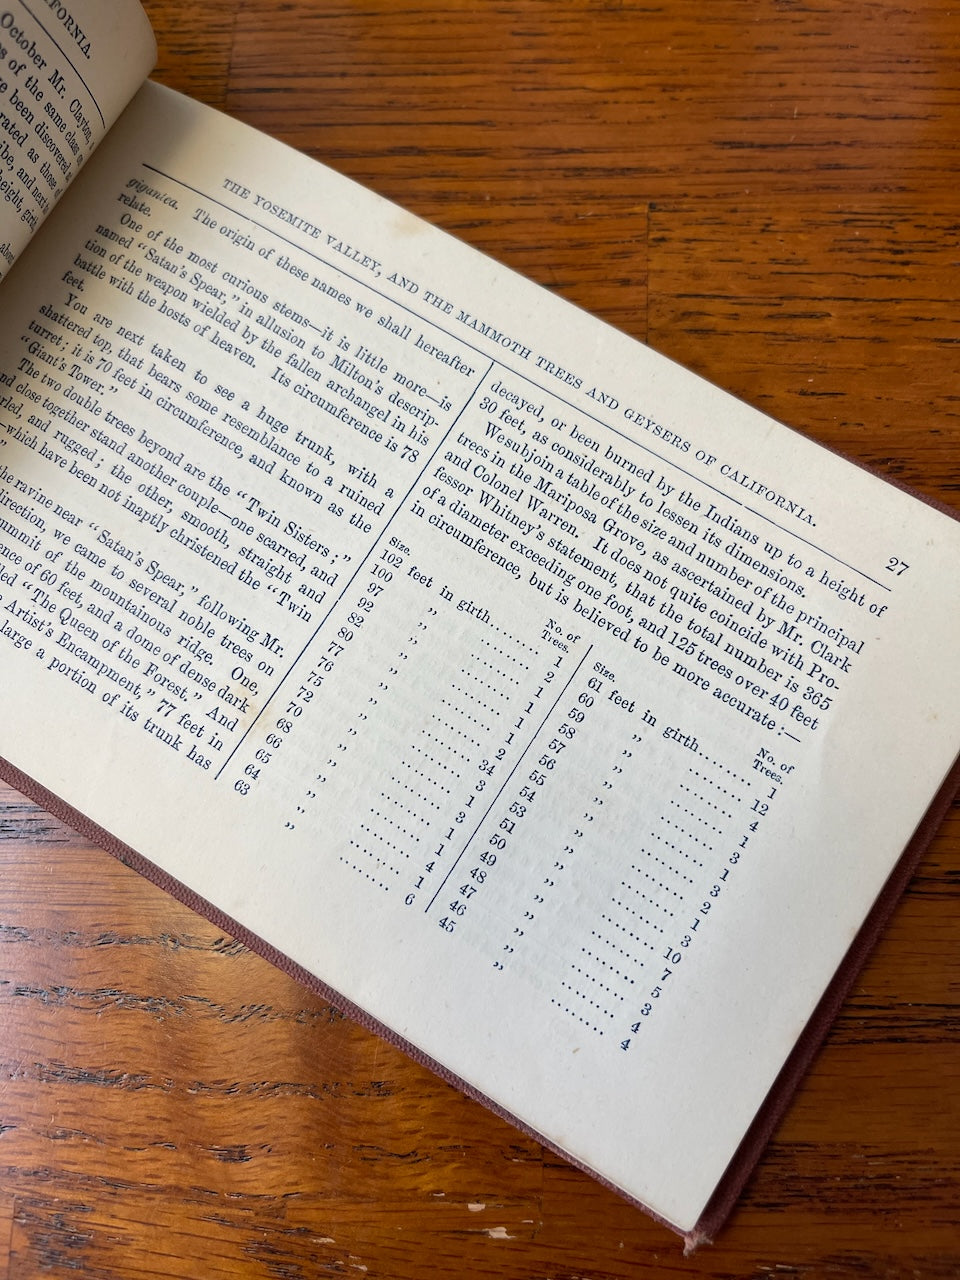 FORNIA.
October Mr. Clayton,
of the same class
been discovered
rated as those of
and next
height,
about
THE YOSEMITE VALLEY, AND THE MAMMOTH TREES AND GEYSERS OF CALIFORNIA.
27
gigantea. The origin of these names we shall hereafter
relate.
One of the most curious stems—it is little more—is
named “Satan’s Spear,” in allusion to Milton’s descrip-
tion of the weapon wielded by the fallen archangel in his
battle with the hosts of heaven. Its circumference is 78
feet.
You are next taken to see a huge trunk, with a
shattered top, that bears some resemblance to a ruined
turret; it is 70 feet in circumference, and known as the
“Giant’s Tower.”
The two double trees beyond are the “Twin Sisters;”
and close together stand another couple—one scarred,
rled, and rugged; the other, smooth, straight and
—which have been not inaptly christened the “Twin
”
the ravine near “Satan’s Spear,” following Mr.
direction, we came to several noble trees on
summit of the mountainous ridge. One,
ence of 60 feet, and a dome of dense dark
ed “The Queen of the Forest.” And
Artist’s Encampment,” 77 feet in
large a portion of its trunk has
decayed, or been burned by the Indians up to a height of
30 feet, as considerably to lessen its dimensions.
We subjoin a table of the size and number of the principal
trees in the Mariposa Grove, as ascertained by Mr. Clark
and Colonel Warren. It does not quite coincide with Pro-
fessor Whitney’s statement, that the total number is 365
of a diameter exceeding one foot, and 125 trees over 40 feet
in circumference, but is believed to be more accurate:—
Size. No. of Trees.
102 feet in girth........ 1
100 ,, ........ 2
97 ,, ........ 1
92 ,, ........ 1
82 ,, ........ 1
80 ,, ........ 1
77 ,, ........ 2
76 ,, ........ 34
75 ,, ........ 3
72 ,, ........ 1
70 ,, ........ 3
68 ,, ........ 1
66 ,, ........ 1
65 ,, ........ 4
64 ,, ........ 1
63 ,, ........ 6
Size. No. of Trees.
61 feet in girth........ 1
60 ,, ........ 12
59 ,, ........ 4
58 ,, ........ 1
57 ,, ........ 3
56 ,, ........ 1
55 ,, ........ 3
54 ,, ........ 2
53 ,, ........ 1
51 ,, ........ 3
50 ,, ........ 10
49 ,, ........ 7
48 ,, ........ 5
47 ,, ........ 3
46 ,, ........ 4
45 ,, ........ 4